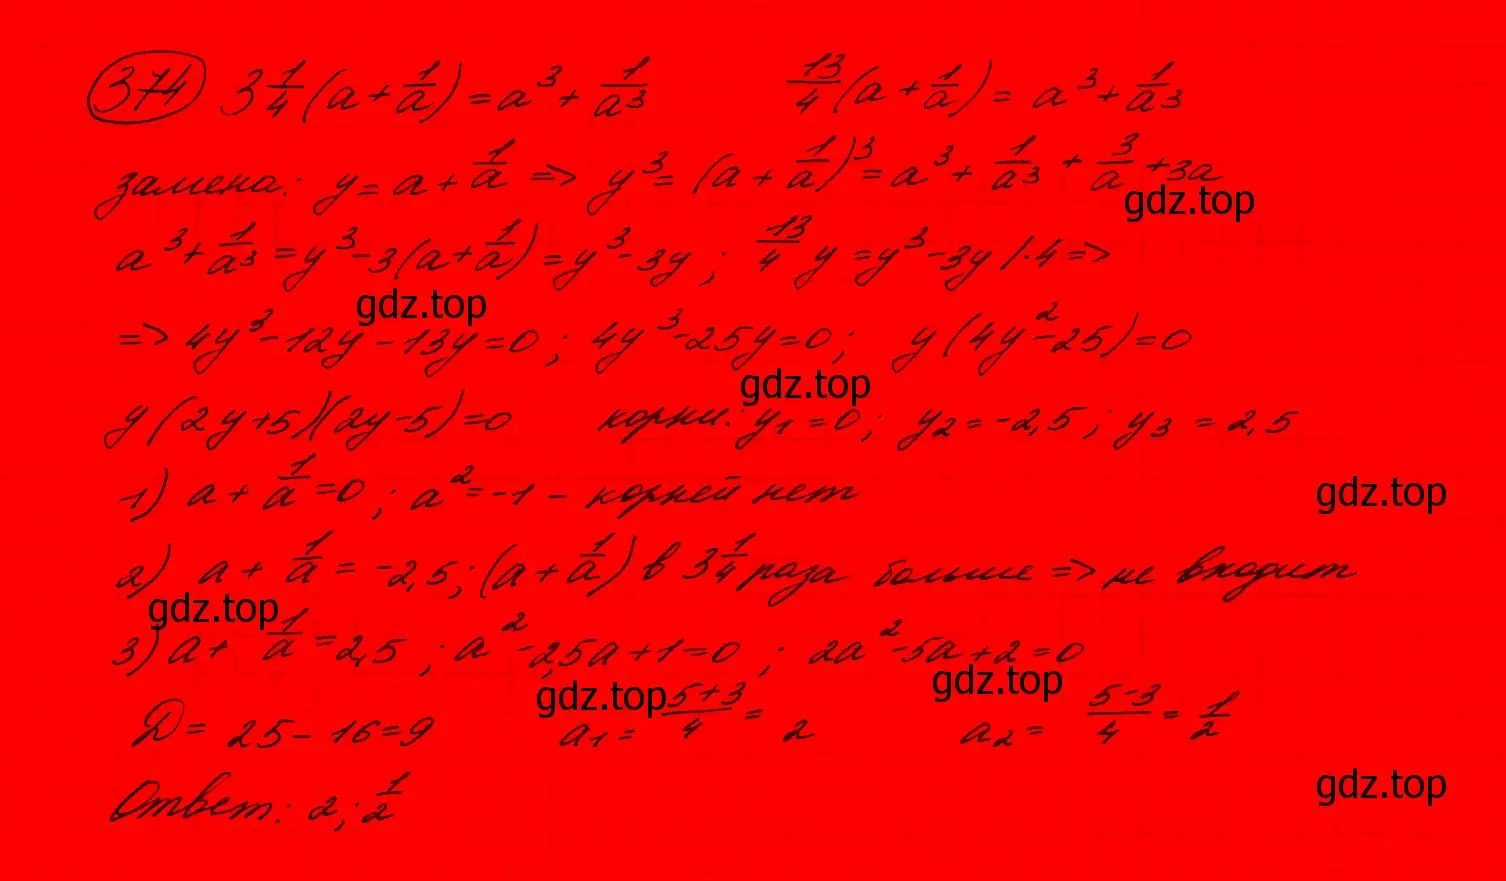 374 3 1/4 (a + 1/a) = a³ + 1/a³ 13/4 (a + 1/a) = a³ + 1/a³
замена: y = a + 1/a => y³ = (a + 1/a)³ = a³ + 1/a³ + 3/a + 3a
gdz.top
a³ + 1/a³ = y³ - 3(a + 1/a) = y³ - 3y ; 13/4 y = y³ - 3y |·4 =>
gdz.top
=> 4y³ - 12y - 13y = 0 ; 4y³ - 25y = 0 ; y(4y² - 25) = 0
gdz.top
y(2y+5)(2y-5) = 0 корни: y₁ = 0 ; y₂ = -2,5 ; y₃ = 2,5
1) a + 1/a = 0 ; a² = -1 - корней нет
gdz.top
2) a + 1/a = -2,5 ; (a + 1/a) в 3 1/4 раза больше => не входит
gdz.top
3) a + 1/a = 2,5 ; a² - 2,5a + 1 = 0 ; 2a² - 5a + 2 = 0
gdz.top gdz.top
Д = 25 - 16 = 9 a₁ = (5+3)/4 = 2 a₂ = (5-3)/4 = 1/2
gdz.top
Ответ: 2 ; 1/2